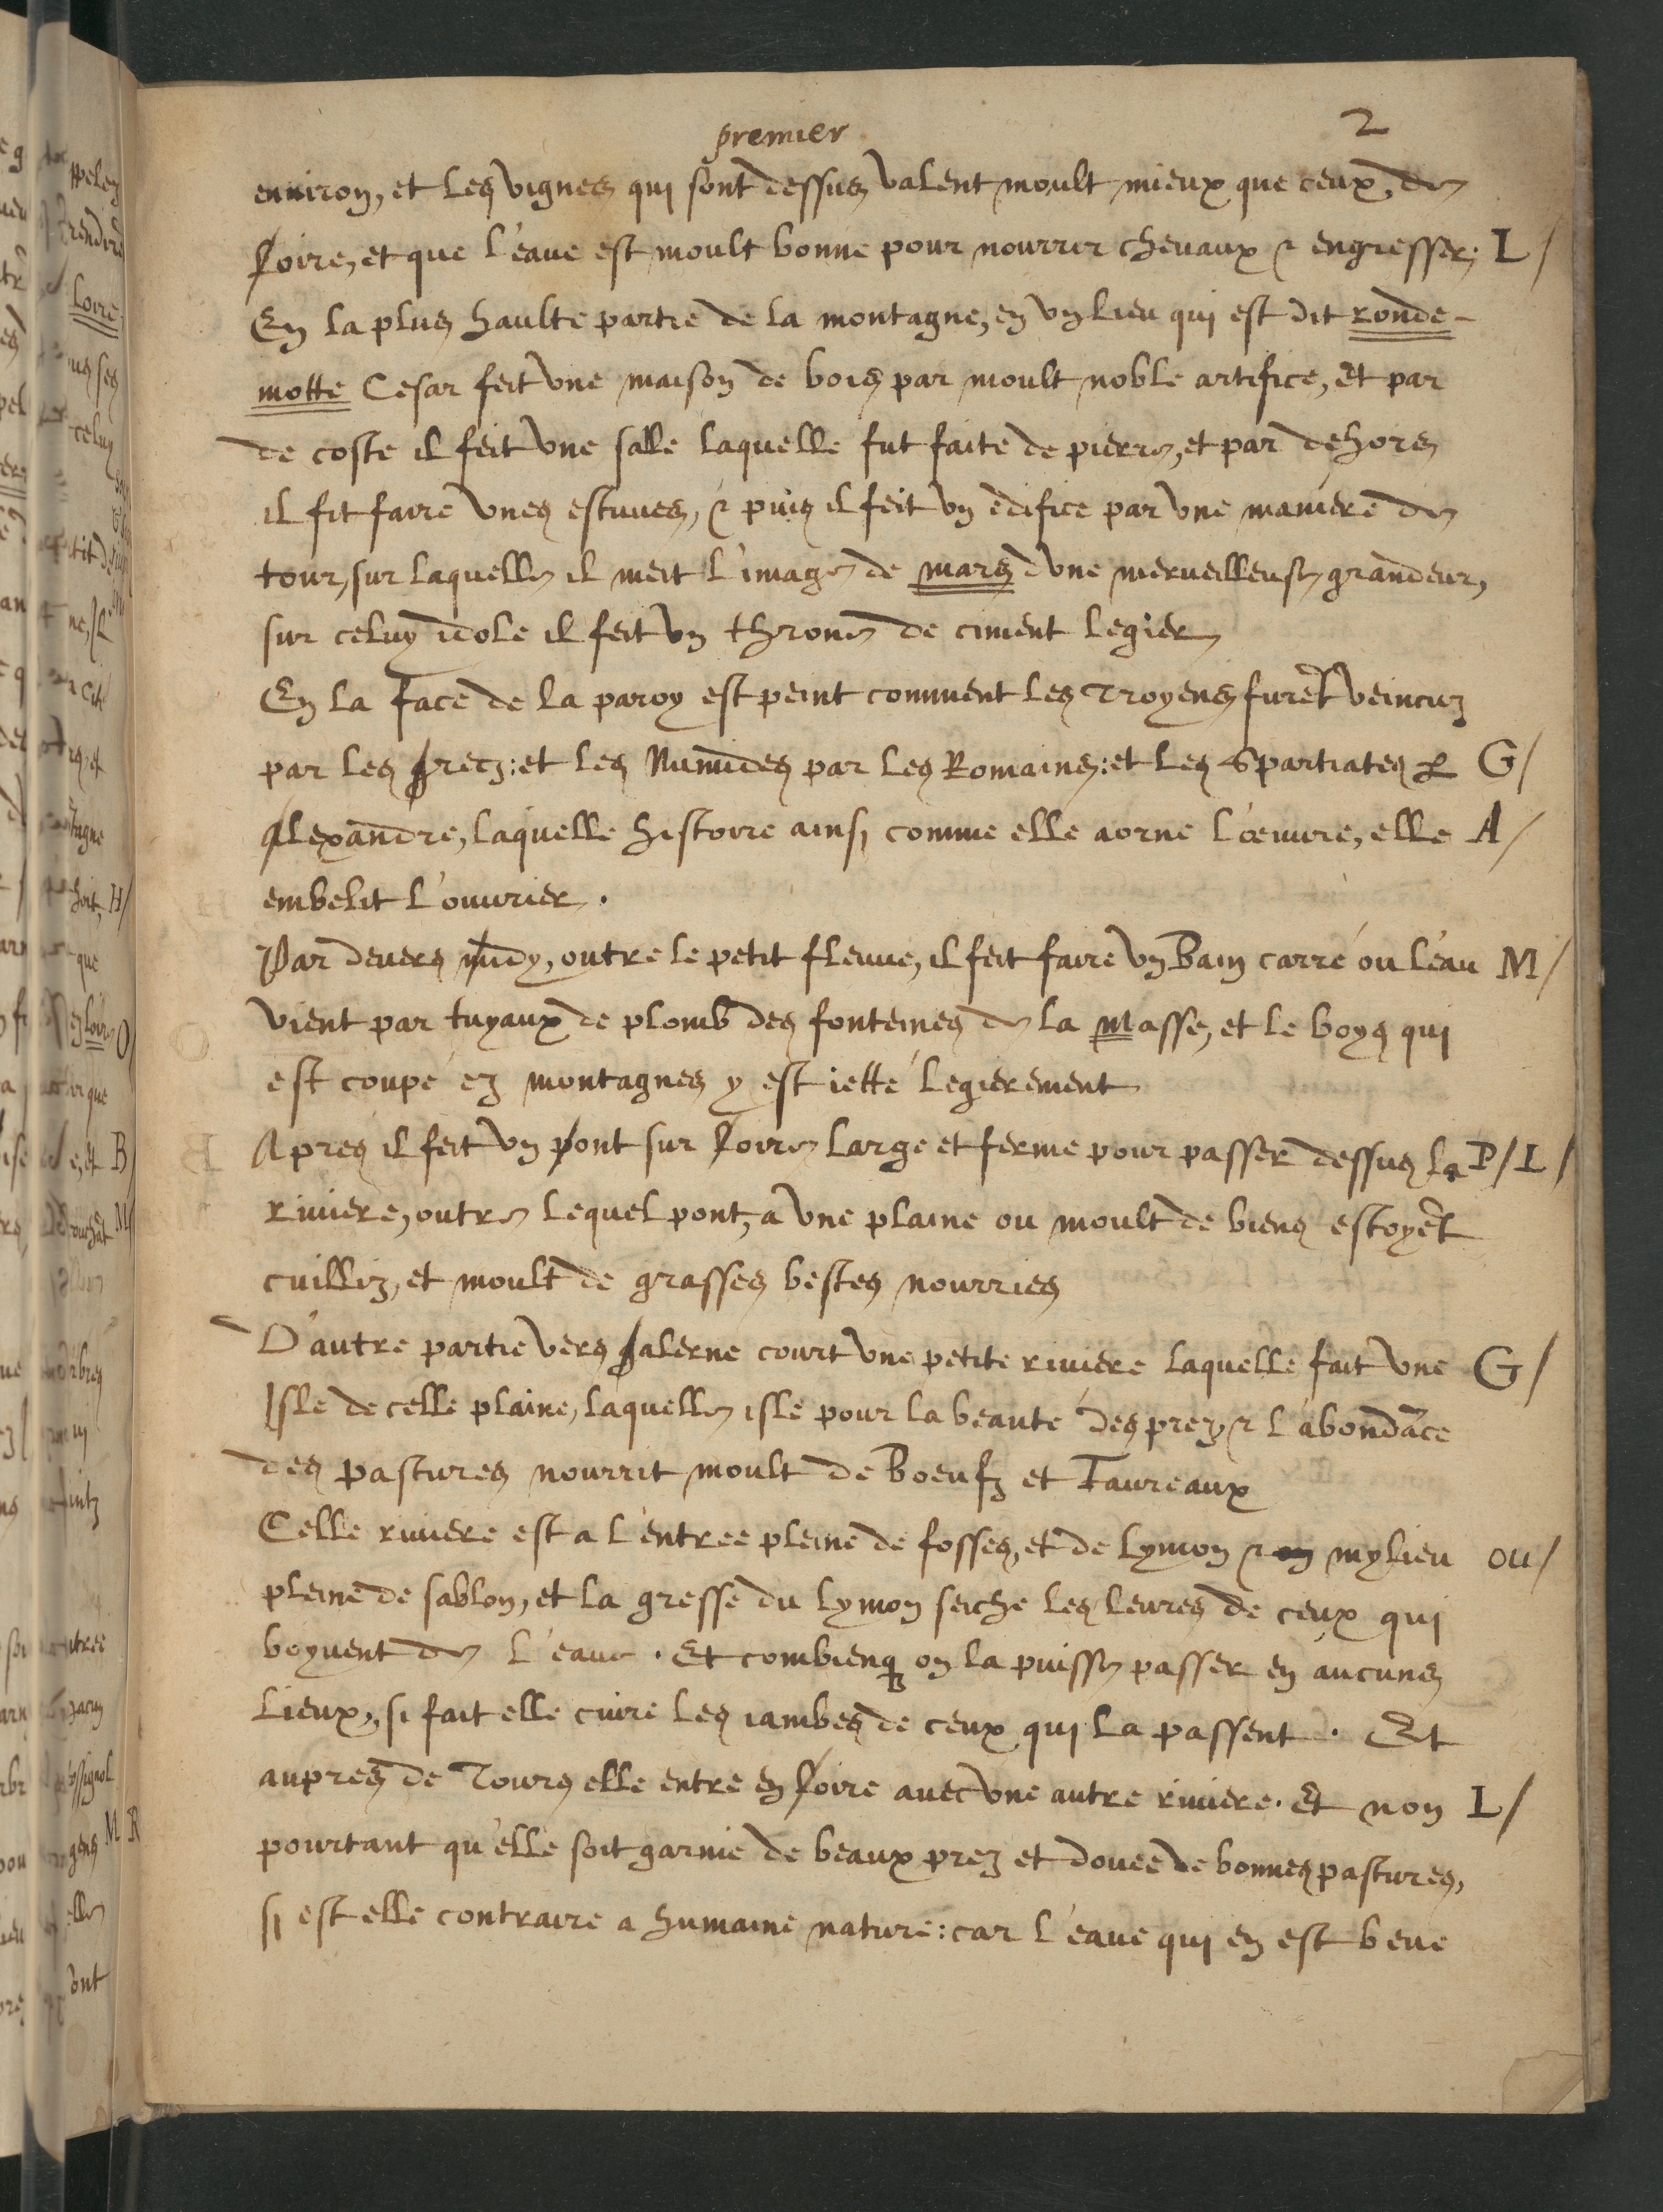 premier
2
enuiron, et les vignes qui sont dessus valent moult mieux que ceux de
loire, et que l'eaue est moult bonne pour nourrir cheuaux & engresser; L/
En la plus haulte partie de la montagne, en vn lieu qui est dit ronde-
motte Cesar feit vne maison de bois par moult noble artifice, Et par
de coste il feit vne salle laquelle fut faite de pierre, et par dehors
il fit faire vnes estuues, & puis il feit vn edifice par vne maniere de
tour, sur laquelle il meit l'image de mars d'vne merueilleuse grandeur,
sur celuy idole il feit vn throne de ciment legier
En la face de la paroy est peint comment les Troyens furēt veincuz
par les grecz: et les Numides par les Romains: et les Spartiates & G/
alexandre, laquelle histoire ainsi comme elle aorne l'œuure, elle A/
embelit l'ouurier.
Par deuers midy, outre le petit fleuue, il feit faire vn Bain carré ou l'eau M/
vient par tuyaux de plomb des fonteines de la Masse, et le boys qui
est coupé ez montagnes y est ietté legierement
Apres il feit vn pont sur loire large et ferme pour passer dessus la P/ L/
riuiere, outre lequel pont, a vne plaine ou moult de biens estoyēt
cuilliz, et moult de grasses bestes nourries
D'autre partie vers galerne court vne petite riuiere laquelle fait vne G/
Isle de celle plaine, laquelle isle pour la beaute des prez & l'abondāce
des pastures nourrit moult de Boeufz et Taureaux
Celle riuiere est a l'entree pleine de fosses, et de lymon & mylieu ou/
pleine de sablon, et la gresse du lymon seiche les leures de ceux qui
boyuent de l'eaue. Et combienq on la puisse passer en aucuns
lieux, si fait elle cuire les iambes de ceux qui la passent. Et
aupres de Tours elle entre en loire auec vne autre riuiere. Et non L/
pourtant qu'elle soit garnie de beaux prez et douee de bonnes pastures,
si est elle contraire a humaine nature: car l'eaue qui en est beue